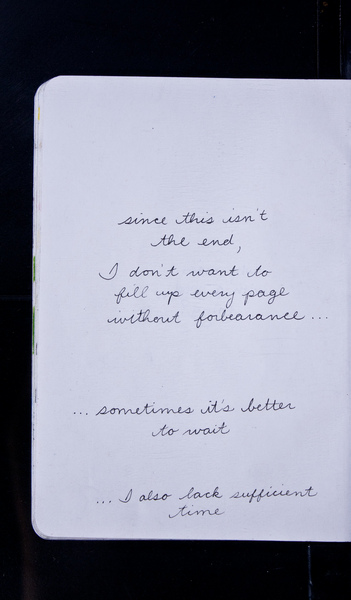 since this isn't
the end,
I don't want to
fill up every page
without forbearance ...
... sometimes it's better
to wait
... I also lack sufficient
time